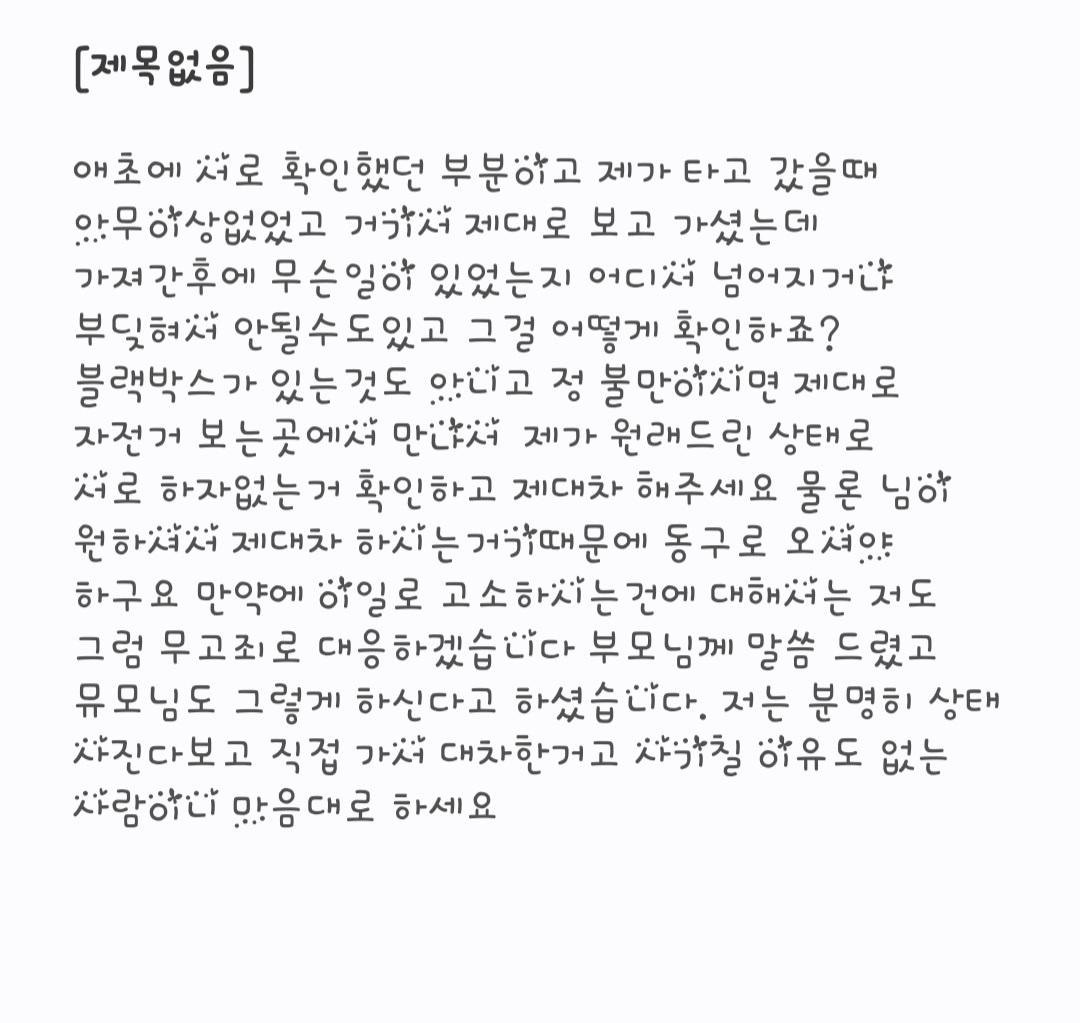 [제목없음]
애초에 서로 확인했던 부분이고 제가 타고 갔을때
아무이상없었고 거기서 제대로 보고 가셨는데
가져간후에 무슨일이 있었는지 어디서 넘어지거나
부딪혀서 안될수도있고 그걸 어떻게 확인하죠?
블랙박스가 있는것도 아니고 정 불만이시면 제대로
자전거 보는곳에서 만나서 제가 원래드린 상태로
서로 하자없는거 확인하고 제대차 해주세요 물론 님이
원하셔서 제대차 하시는거기때문에 동구로 오셔야
하구요 만약에 이일로 고소하시는건에 대해서는 저도
그럼 무고죄로 대응하겠습니다 부모님께 말씀 드렸고
뮤모님도 그렇게 하신다고 하셨습니다. 저는 분명히 상태
사진다보고 직접 가서 대차한거고 사기칠 이유도 없는
사람이니 마음대로 하세요